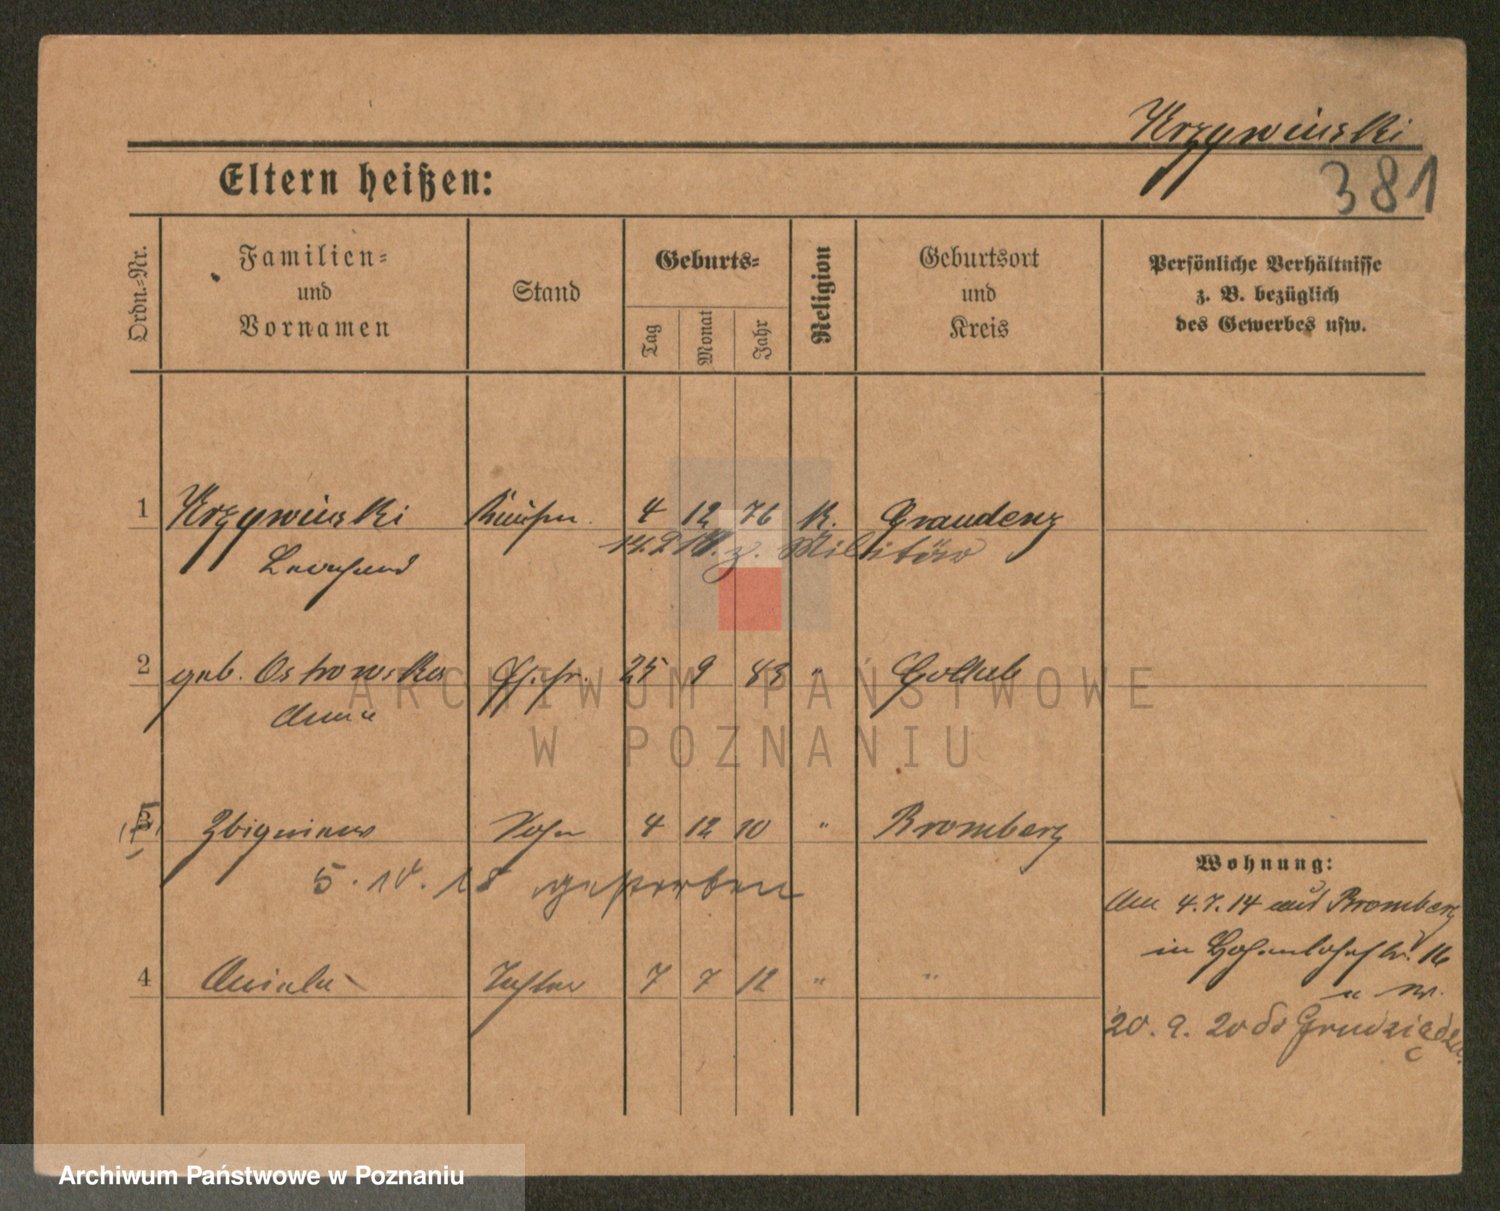 Krzywinski
381
Eltern heißen:
Ordn.-Nr.
Familien-
und
Vornamen
Stand
Geburts-
Tag
Monat
Jahr
Religion
Geburtsort
und
Kreis
Persönliche Verhältnisse
z. B. bezüglich
des Gewerbes usw.
1 Krzywinski Kaufm. 4 12 76 K. Graudenz
z. Militär
Leonhard
2 geb. Ostrowska Ehefr. 25 9 83 " Gollub
Anna
Zbigniew Sohn 4 12 10 " Bromberg
5. 10. 18 gestorben
4 Aniela Tochter 7 7 12 " "
Wohnung:
Am 4.7.14 aus Bromberg
in Hohenlohestr. 16
20. 9. 20 do Grudziądza.
ARCHIWUM PAŃSTWOWE
W POZNANIU
Archiwum Państwowe w Poznaniu